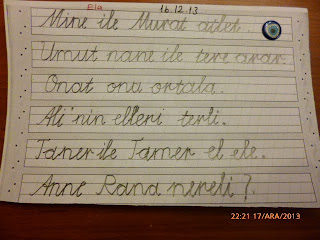 Ela 16.12.13
Mine ile Murat atlet.
Umut nane ile tere arar.
Onat onu ortala.
Ali'nin elleri terli.
Taner ile Tamer el ele.
Anne Rana nereli?
22:21 17/ARA/2013